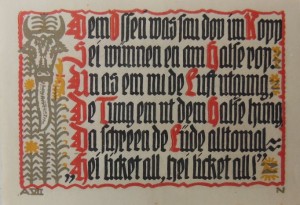 Dem Ossen was sau dov im Kopp
Sei wunnen en am Halse rop
Un as em nu de Luft utgung
De Tung em ut dem Halse hung
Da schreen de Lüde alltomal
„Hei licket all, hei licket all!"